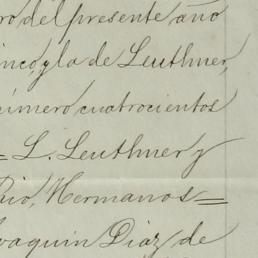 ro del presente año
inco, y la de Leuthner,
número cuatrocientos
= L. Leuthner y
Rio, Hermanos=
Joaquin Diaz de